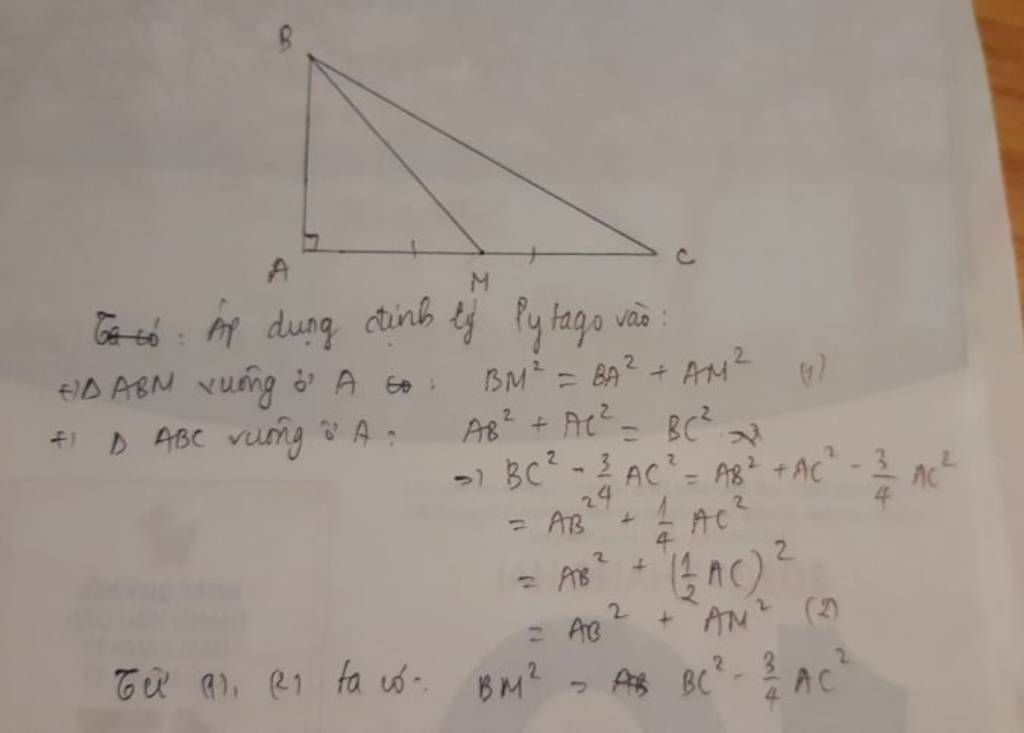 B
A
M
C
Ta có : Áp dụng định lý Pytago vào :
+) Δ ABM vuông ở A có : BM² = BA² + AM² (1)
+) Δ ABC vuông ở A : AB² + AC² = BC²
=) BC² - 3/4 AC² = AB² + AC² - 3/4 AC²
= AB² + 1/4 AC²
= AB² + (1/2 AC)²
= AB² + AM² (2)
Từ (1), (2) ta có : BM² = AB BC² - 3/4 AC²